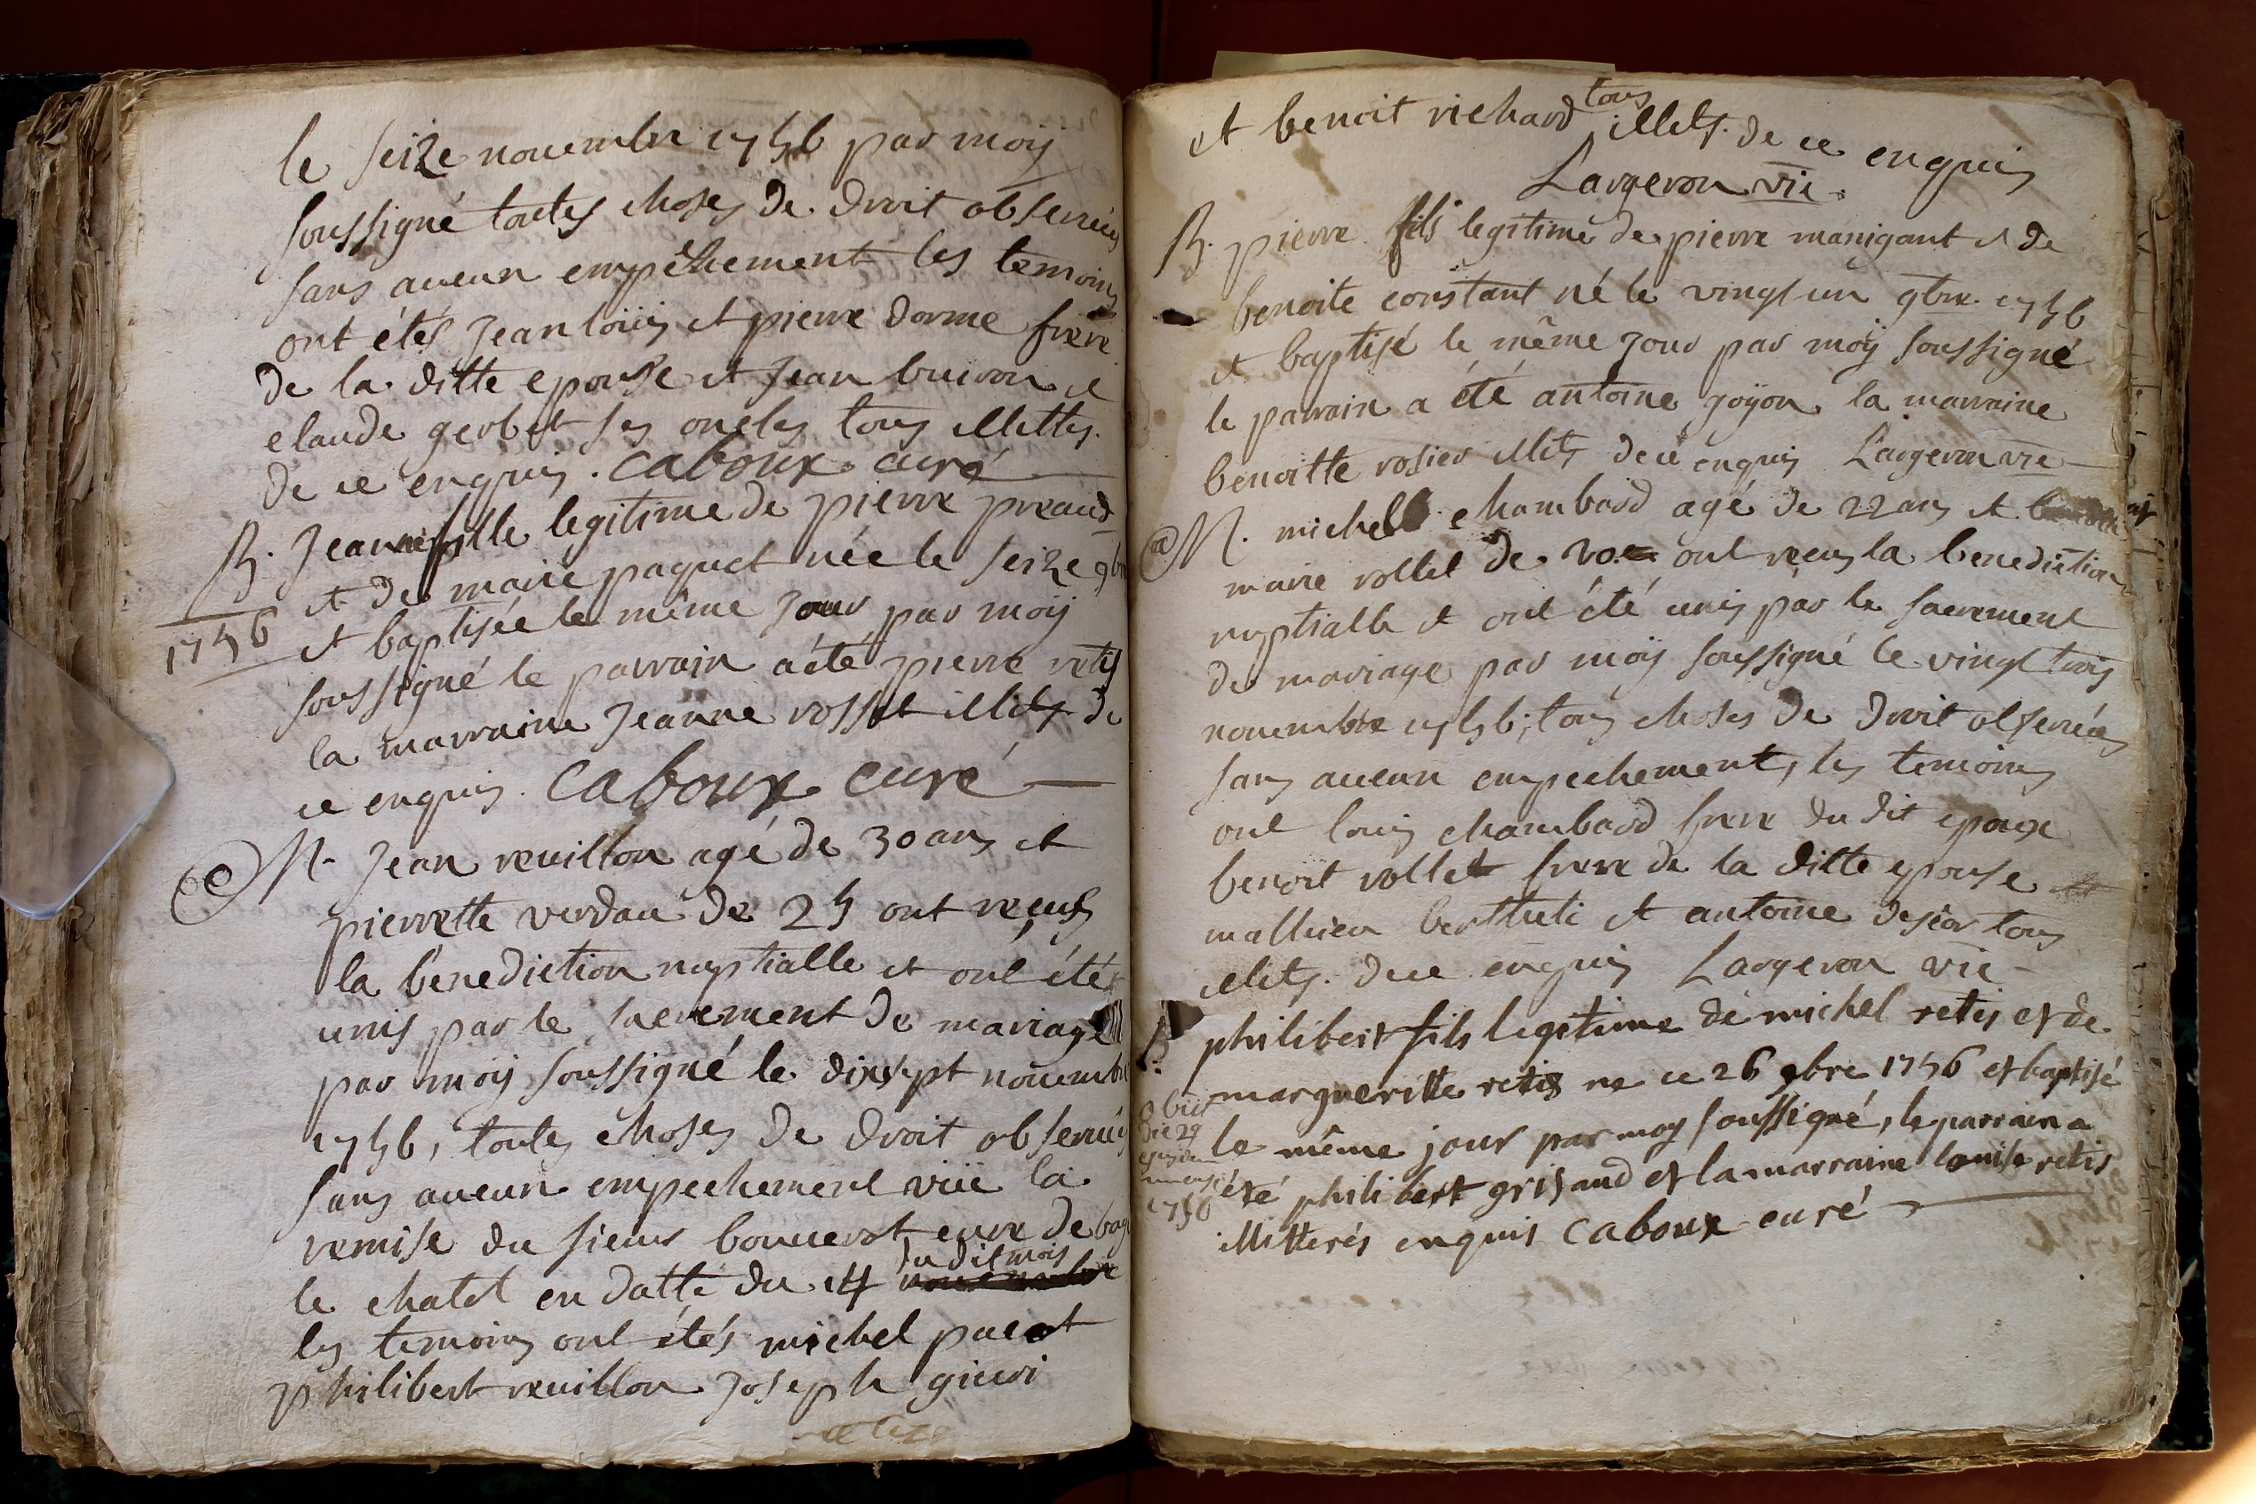 le seize novembre 1756 par moy
soussigné toutes choses de droit observées
sans aucun empêchement les temoins
ont étés jean louis et pierre dorme frere
de la ditte epouse et jean buiron et
claude gerbet ses oncles tous illettes.
de ce enquis. caboux curé
B. jeanne fille legitime de pierre preaud
1756
et de marie paquet née le seize 9bre
et baptisée le même jour par moy
soussigné le parrain a été pierre retis
la marraine jeanne rosset illets de
ce enquis. caboux curé
M. jean revillon agé de 30 ans et
pierrette verdau de 25 ont reçus
la bénediction nuptialle et ont étés
unis par le sacrement de mariage
par moy soussigné le dixsept novembre
1756, toutes choses de droit observées
sans aucun empechement viie la
remise du sieur bouverot curé de bagé
du dit mois
le chatel en datte du 14
les temoins ont étés michel pacot
philibert revillon joseph
et benoit richard tous illets. de ce enquis
Largeron vic.
B. pierre fils legitime de pierre manigant et de
benoite constant né le vingt un 9bre. 1756
et baptisé le même jour par moy soussigné
le parrain a été antoine goyon la marraine
benoitte rosier illets de ce enquis Largeron vic
M. michel chambard agé de 22 ans et
marie vollet de 20 ont recus la benediction
nuptialle et ont été unis par le sacrement
de mariage par moy soussigné le vingt trois
novembre 1756; tous choses de droit observées
sans aucun empechement, les temoins
ont louis chambard frere du dit epoux
benoit vollet frere de la ditte epouse
mathieu et antoine tous
illets. de ce enquis Largeron vic
B. philibert fils legitime de michel retis et de
marguerite retis ne ce 26 9bre 1756 et baptisé
le même jour par moy soussigné, le parrain a
été philibert grisaud et la marraine louise retis
illitterés enquis caboux curé
obiit
die 29
ejusdem
mensis
1756